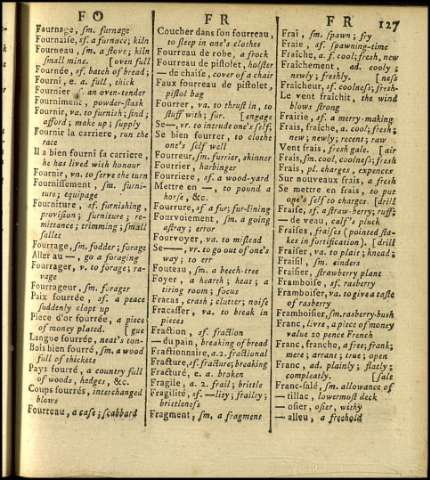 FO
FR
FR
127
Fournage, sm. furnage
Fournaise, sf. a furnace; kiln
Fourneau, sm. a stove; kiln
small mine. [oven full
Fournée, sf. batch of bread;
Fourni, e. a. full, thick
Fournier an oven-tender
Fourniment, powder-flask
Fournir, va. to furnish; find;
afford; make up; supply
Fournir la carriere, run the
race
Il a bien fourni sa carriere,
he has lived with honour
Fournir, va. to serve the turn
Fournissement, sm. furni-
ture; equipage
Fourniture, sf. furnishing,
provision; furniture; re-
mittance; trimming; small
sallet
Fourrage, sm. fodder; forage
Aller au —, go a foraging
Fourrager, v. to forage; ra-
vage
Fourrageur, sm. forager
Paix fourrée, sf. a peace
suddenly clapt up
Piece d'or fourrée, a piece
of money plated. [gue
Langue fourrée, neat's ton-
Bois bien fourré, sm. a wood
full of thickets
Pays fourré, a country full
of woods, hedges, &c.
Coups fourrés, interchanged
blows
Fourreau, a case; scabbard
Coucher dans son fourreau,
to sleep in one's clothes
Fourreau de robe, a frock
Fourreau de pistolet, holster
— de chaise, cover of a chair
Faux fourreau de pistolet,
pistol bag
Fourrer, va. to thrust in, to
stuff with; fur. [engage
Se—, vr. to intrude one's self;
Se bien fourrer, to clothe
one's self well
Fourreur, sm. furrier, skinner
Fourrier, harbinger
Fourriere, sf. a wood-yard
Mettre en —, to pound a
horse, &c.
Fourrure, sf. a fur; fur-lining
Fourvoiement, sm. a going
astray; error
Fourvoyer, va. to mislead
Se—, vr. to go out of one's
way; to err
Fouteau, sm. a beech-tree
Foyer, a hearth; heat; a
tiring room; focus
Fracas, crash; clutter; noise
Fracasser, va. to break in
pieces
Fraction, sf. fraction
— du pain, breaking of bread
Fractionnaire, a. 2. fractional
Fracture, sf. fracture; breaking
Fracturé, e. a. broken
Fragile, a. 2. frail; bristle
Fragilité, sf. —lity; frailty;
bristleness
Fragment, sm. a fragment
Frai, sm. spawn; fry
Fraie, sf. spawning-time
Fraîche, a. f. cool; fresh, new
Fraîchement, ad. cooly;
newly; freshly. [ness
Fraîcheur, sf. coolness; fresh-
Le vent fraîchit, the wind
blows strong
Frairie, sf. a merry-making
Frais, fraîche, a. cool; fresh;
new; newly; recent; raw
Vent frais, fresh gale. [air
Frais, sm. cool, coolness; fresh
Frais, pl. charges, expences
Sur nouveaux frais, a fresh
Se mettre en frais, to put
one's self to charges. [drill
Fraise, sf. a strawberry; ruff;
— de veau, calf's pluck
Fraises, fraises (pointed stakes
in fortification). [drill
Fraiser, va. to plait; knead;
Fraisil, sm. cinders
Fraisier, strawberry plant
Framboise, sf. rasberry
Framboiser, va. to give a taste
of rasberry
Framboisier, sm. rasberry-bush
Franc, livre, a piece of money
value 10 pence French
Franc, franche, a. free, frank;
mere; arrant; true; open
Franc, ad. plainly; flatly;
compleatly. [salt
Franc-salé, sm. allowance of
— tillac, lowermost deck
— osier, osier, withy
— alleu, a freehold